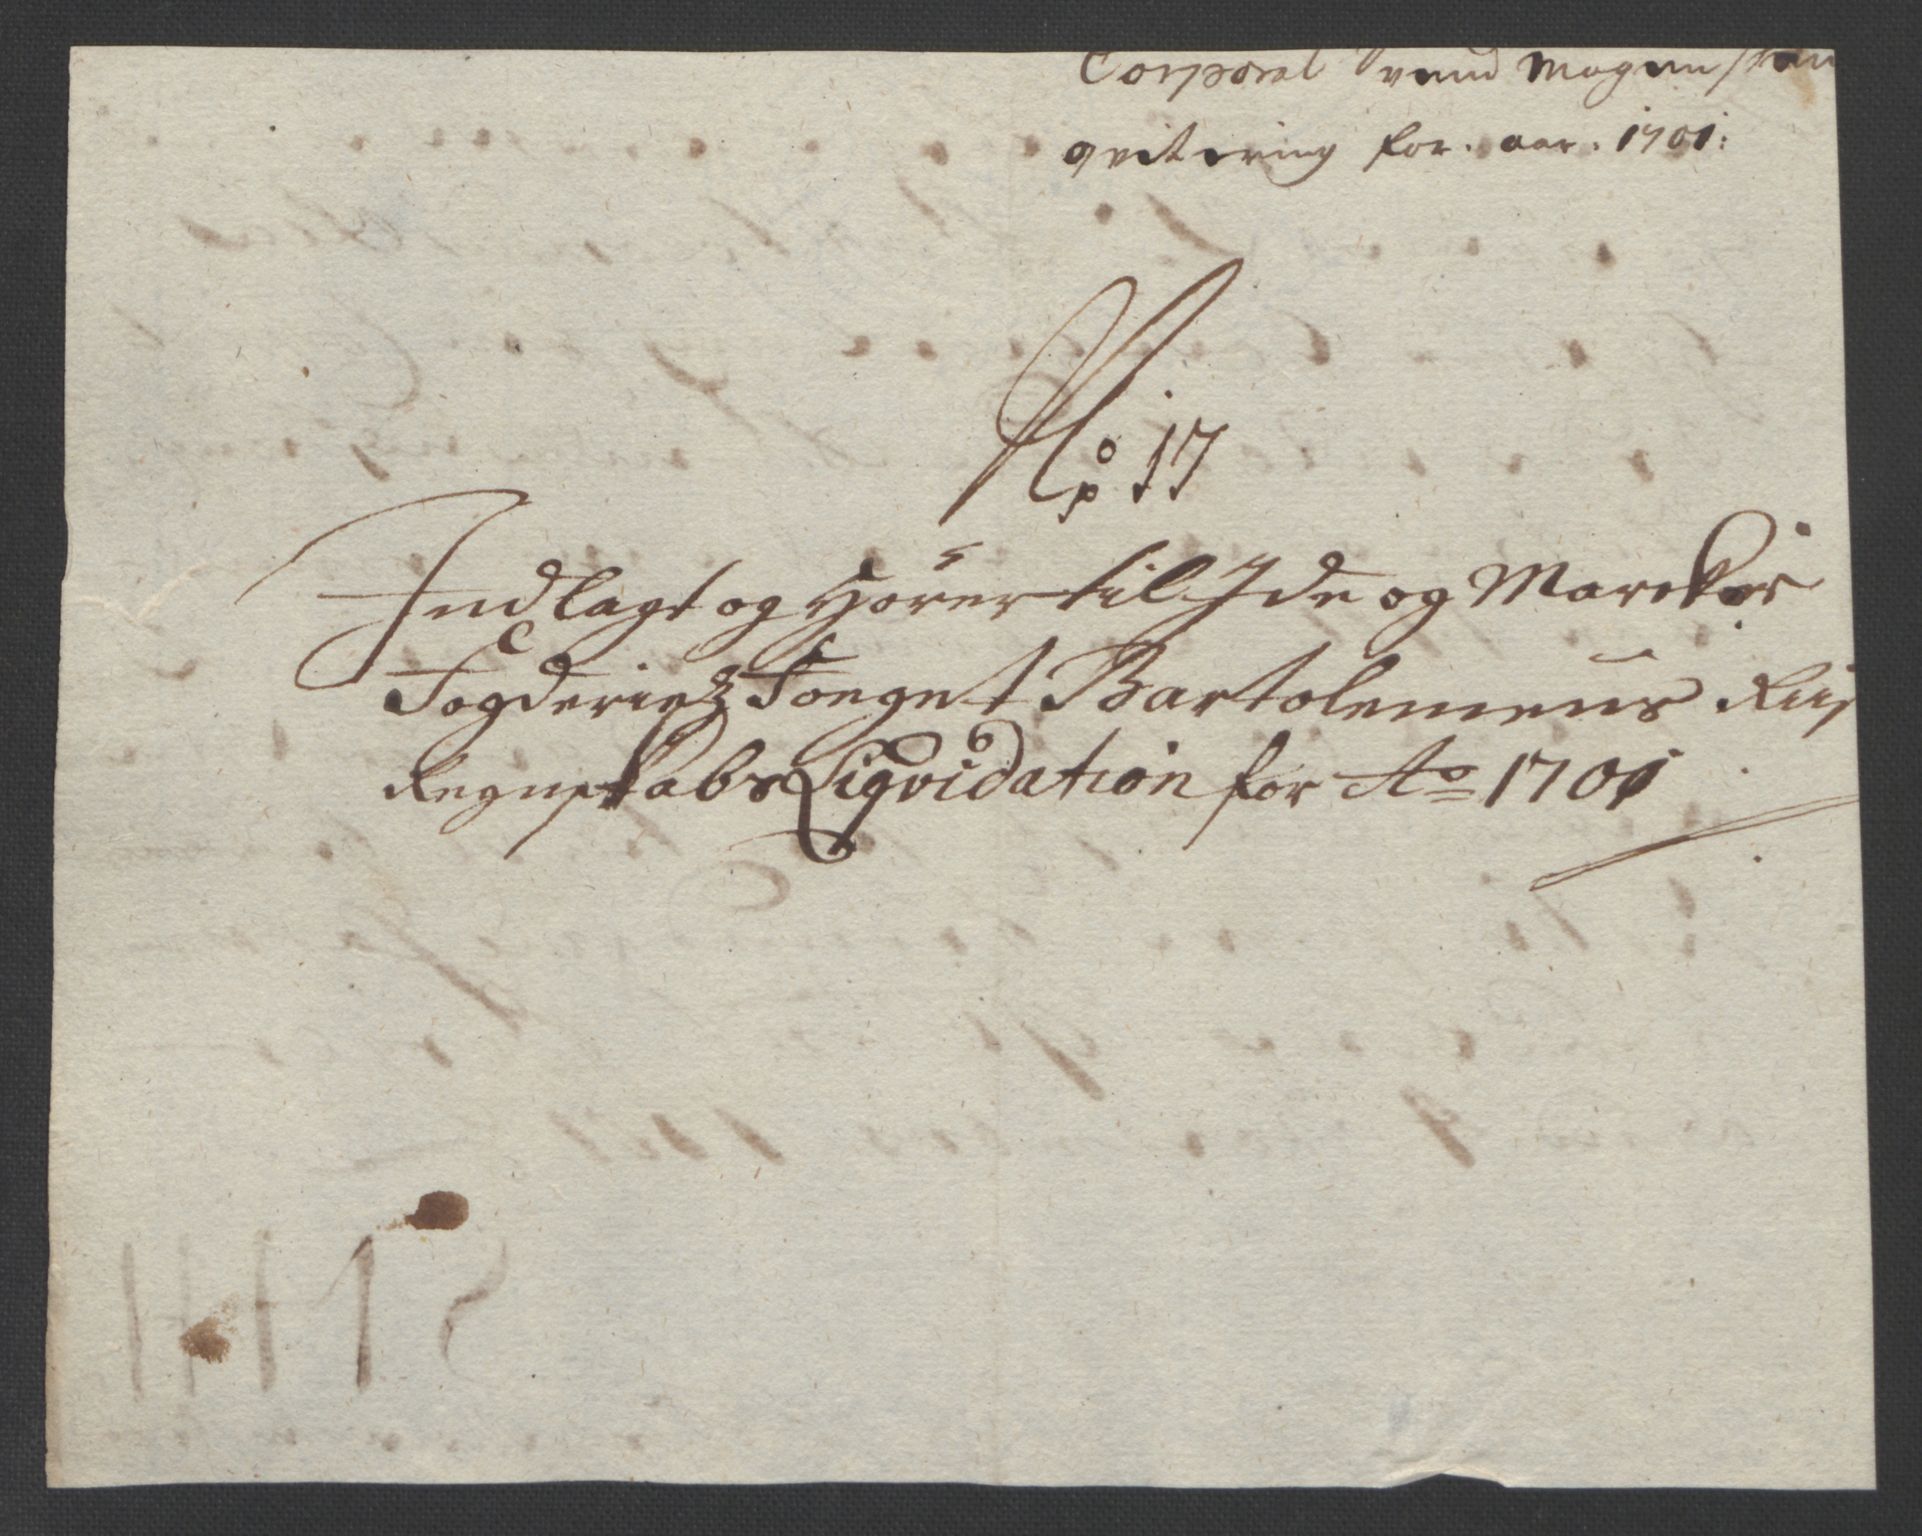 Corporal Svend Mogens
qvitering for. aar. 1701:
No 17
Indlagt og Hörer til Ide og Marcker
Fogderietz Foeget Bartolemeus
Regnskabs Liqvidation for Ao 1701